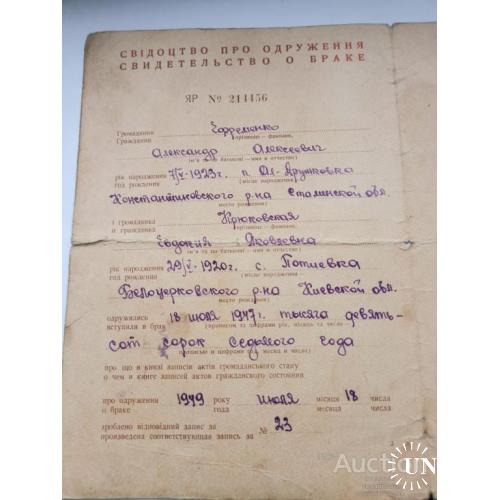 СВІДОЦТВО ПРО ОДРУЖЕННЯ
СВИДЕТЕЛЬСТВО О БРАКЕ
ЯР № 214456
Громадянин Ефременко
Гражданин (прізвище — фамилия,
Александр Алексеевич
(ім'я та по батькові — имя и отчество)
рік народження 7/IV-1923 г. п. Ал-Дружковка
год рождения (місце народження—
Константиновского р-на Сталинской обл.
место рождения)
і громадянка Крюковская
и гражданка (прізвище — фамилия,
Евдокия Яковлевна
ім'я та по батькові — имя и отчество)
рік народження 29/V-1920 г. с. Потиевка
год рождения (місце народження—
Белоцерковского р-на Киевской обл.
место рождения)
одружились 18 июля 1947 г. тысяча девять-
вступили в брак (прописом та цифрами рік, місяць та число—
сот сорок седьмого года
прописью и цифрами год месяц и число)
про що в книзі записів актів громадянського стану
о чем в книге записей актов гражданского состояния
про одруження 1949 року июля місяця 18 числа
о браке года месяца числа
зроблено відповідний запис за № 23
произведена соответствующая запись за
Auction
UN